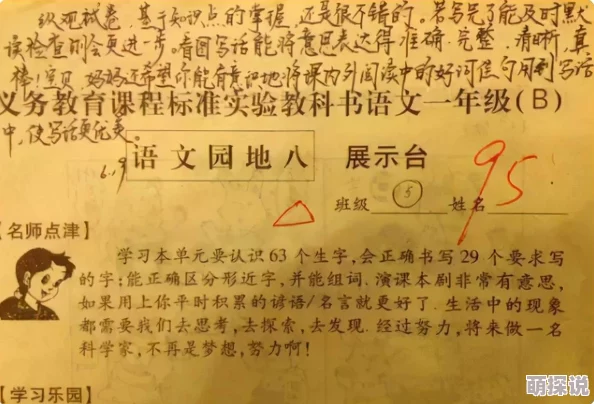 纵观试卷，基于知识点的掌握，还是很不错的。若写完了能及时默
读检查则会更进一步。看图写话能将意思表达得准确、完整、清晰，真
棒！宝贝，妈妈还希望你能有意识地将课内外阅读中的好词佳句用到写话
义务教育课程标准实验教科书语文一年级(B)
中，使写话更优美。
6.19
语文园地八 展示台
95
班级 5 姓名
【名师点津】
学习本单元要认识63个生字,会正确书写29个要求写
的字;能正确区分形近字,并能组词.演课本剧非常有意思,
如果用上你平时积累的谚语/名言就更好了.生活中的现象
都需要我们去思考,去探索,去发现.经过努力,将来做一名
科学家,不再是梦想,努力啊!
【学习乐园】
萌探说